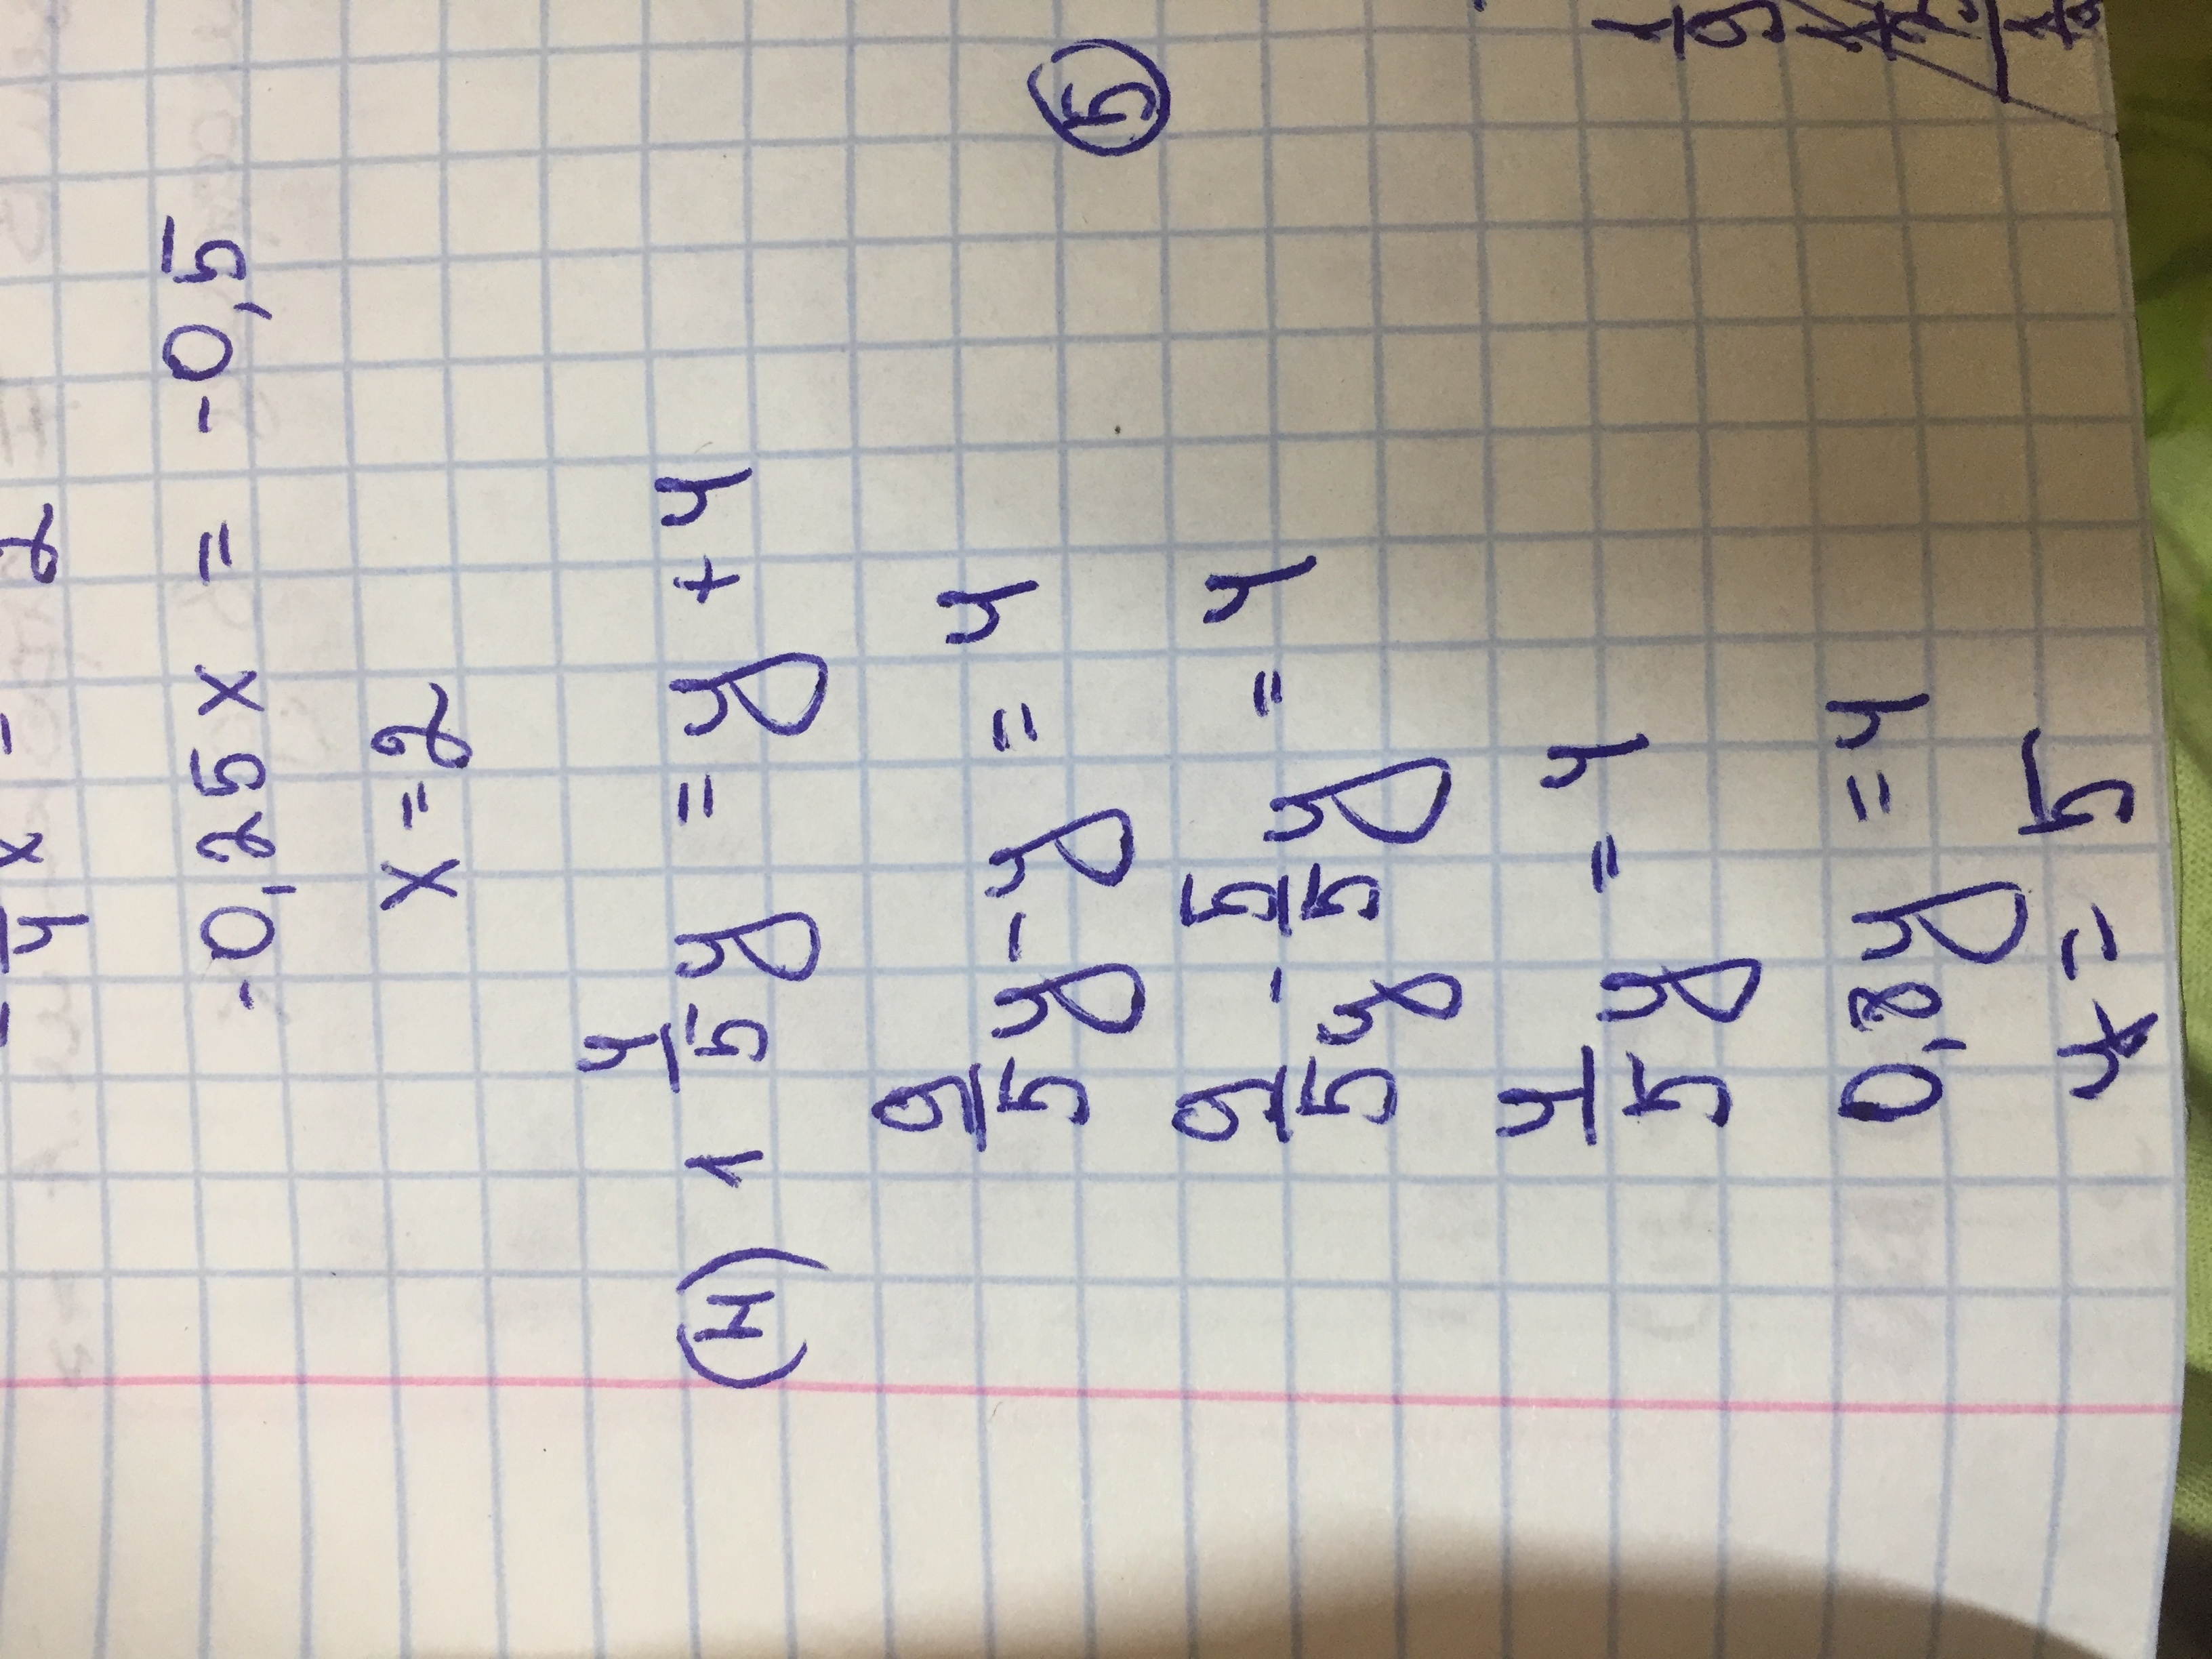 -0,25x = -0,5
x = 2
(н) 1 4/5 y = y + 4
9/5 y - y = 4
9/5 y - 5/5 y = 4
4/5 y = 4
0,8y = 4
y = 5
5